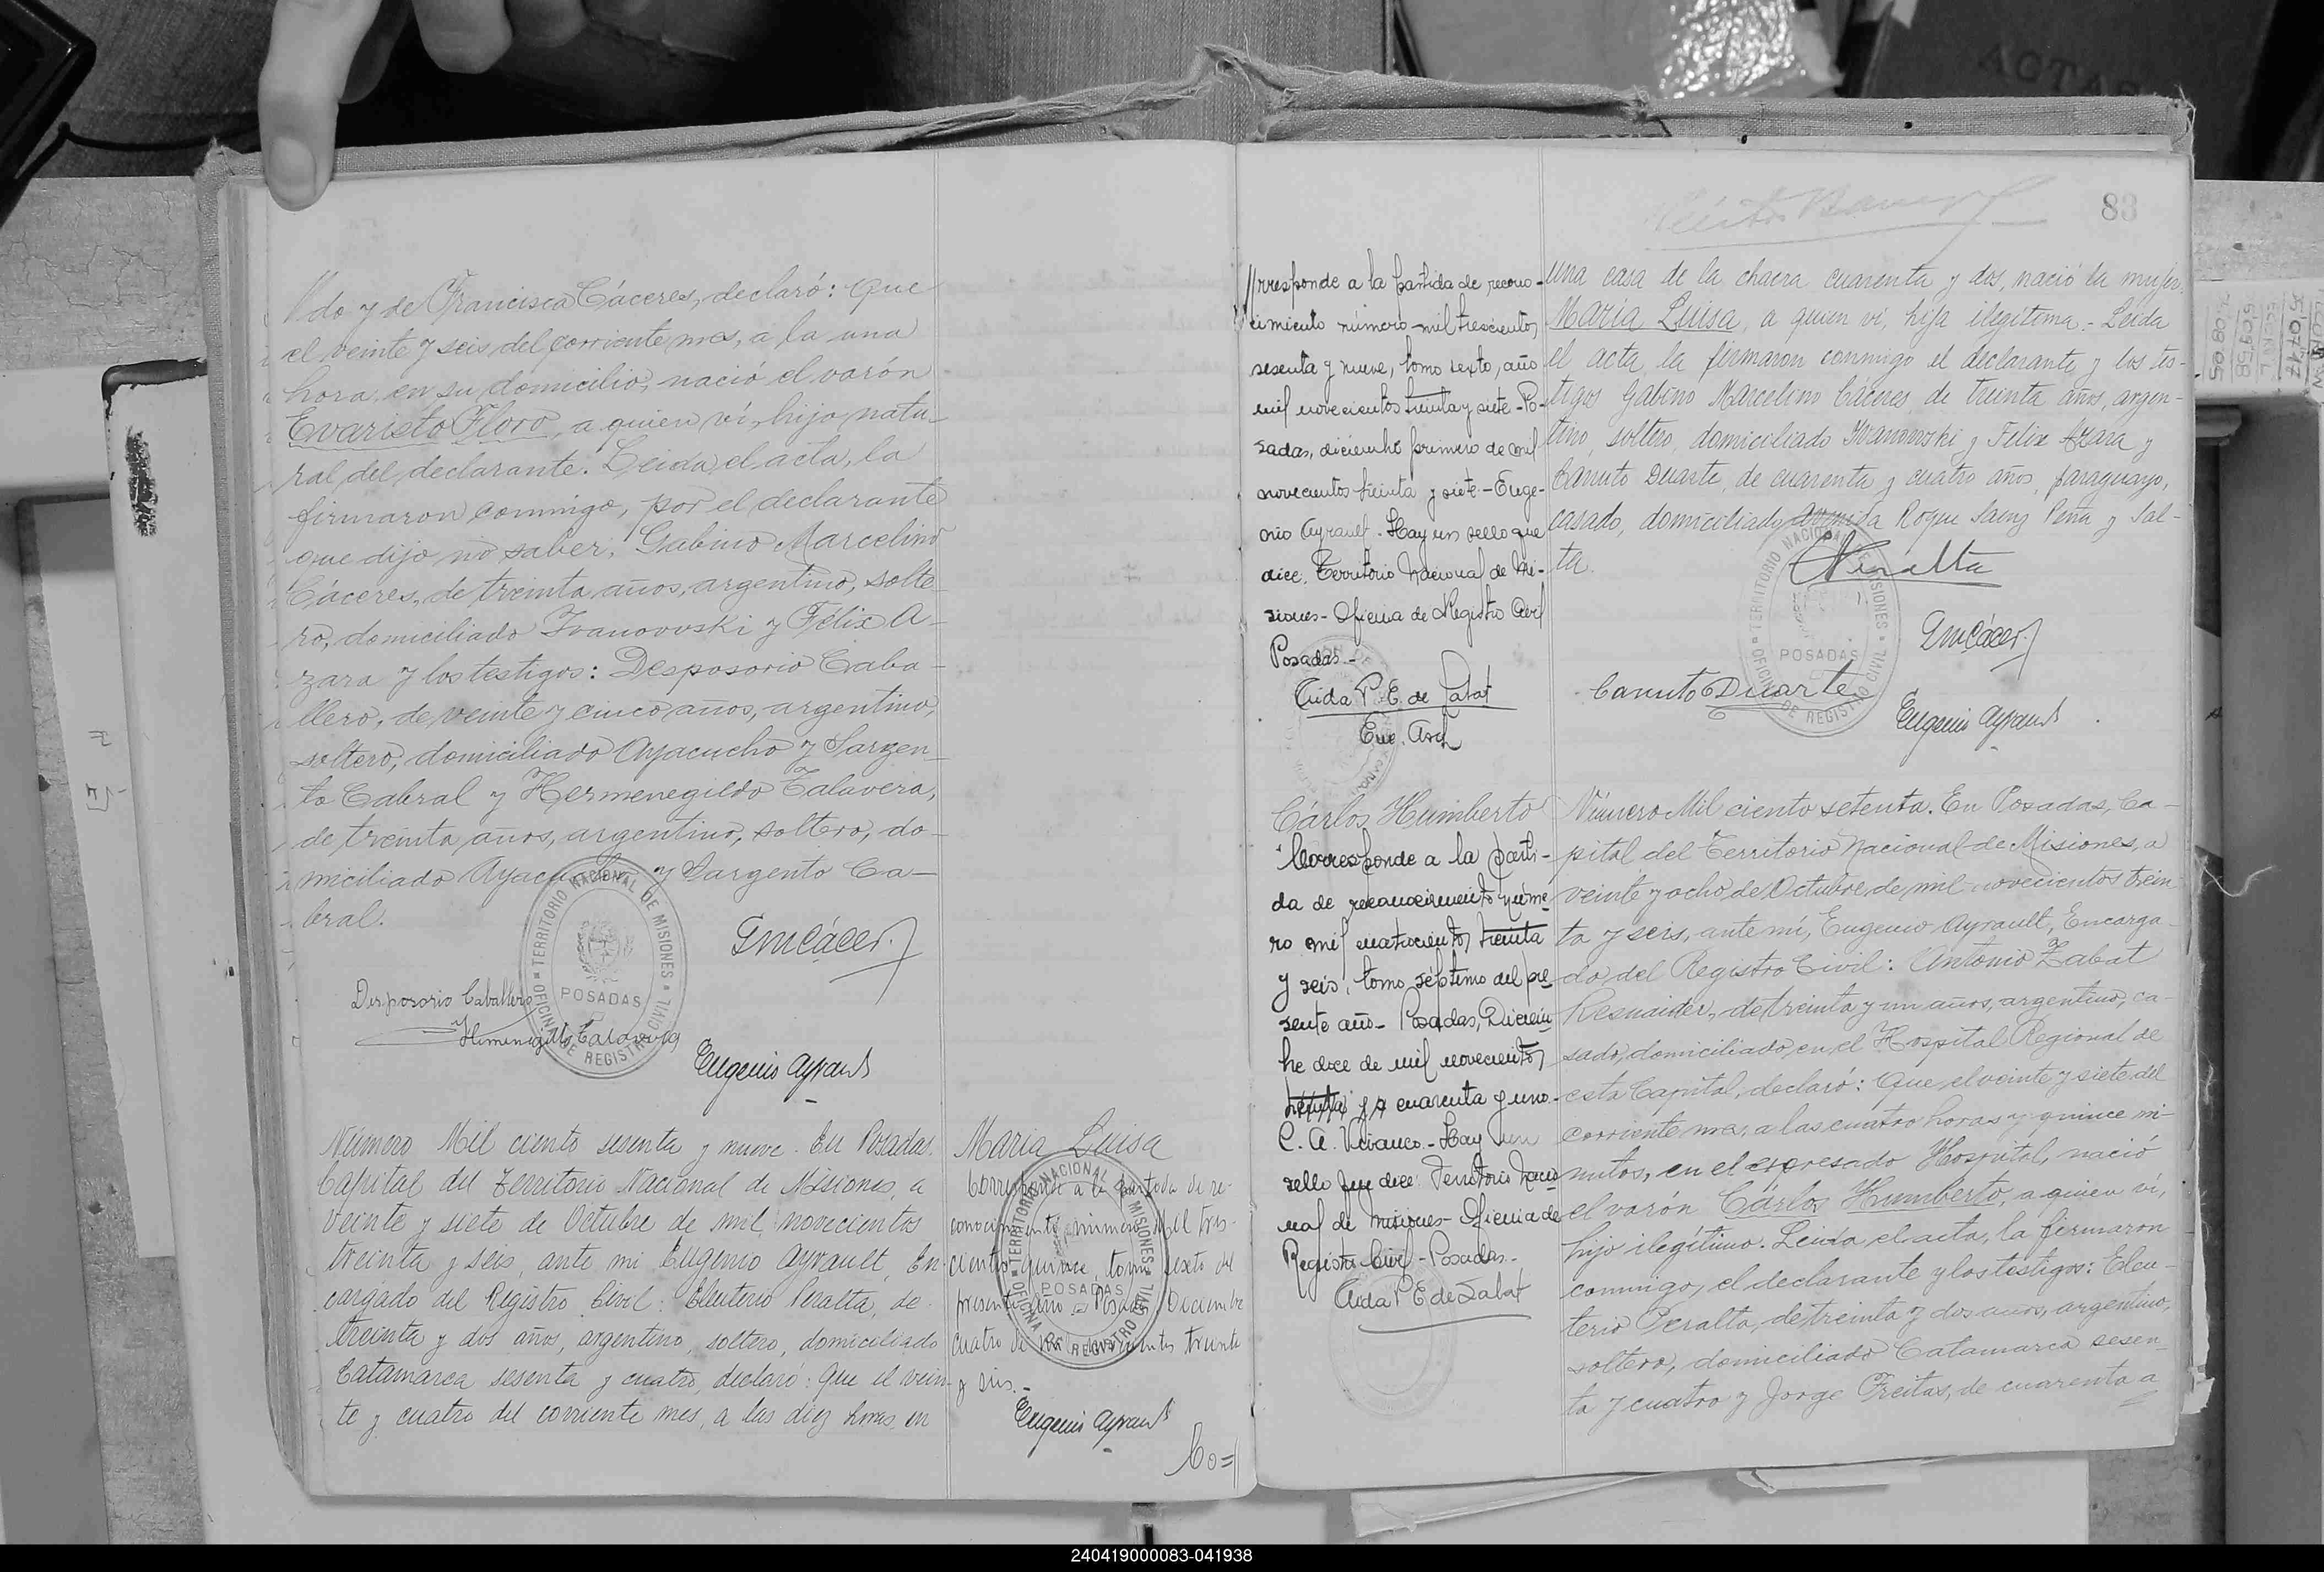 do y de Francisca Cáceres, declaró: Que
el veinte y seis del corriente mes, a la una
hora, en su domicilio, nació el varón
Evaristo Floro, a quien ví, hijo natu-
ral del declarante. Leida el acta, la
firmaron conmigo, por el declarante
que dijo no saber, Gabino Marcelino
Cáceres, de treinta años, argentino, solte-
ro, domiciliado Ivanovski y Félix A-
zara y los testigos: Desposorio Caba-
llero, de veinte y cinco años, argentino,
soltero, domiciliado Ayacucho y Sargen-
to Cabral y Hermenegildo Talavera,
de treinta años, argentino, soltero, do-
miciliado Ayacucho y Sargento Ca-
bral.
GMCácer.
Desposorio Caballero
Eugenio Ayrault
TERRITORIO NACIONAL DE MISIONES
POSADAS
OFICINA DE REGISTRO CIVIL
Número Mil ciento sesenta y nueve. En Posadas,
Capital del Territorio Nacional de Misiones, a
veinte y siete de Octubre de mil novecientos
treinta y seis, ante mi Eugenio Ayrault, En-
cargado del Registro Civil: Eleuterio Peralta, de
treinta y dos años, argentino, soltero, domiciliado
Catamarca sesenta y cuatro, declaró: Que el vein-
te y cuatro del corriente mes, a las diez horas, en
Maria Luisa
Corresponde a la partida de re-
conocimiento número Mil tres-
cientos quince, tomo sexto del
presente año - Posadas Diciembre
cuatro de mil novecientos treinta
y seis.-
Eugenio Ayrault
Co=
TERRITORIO NACIONAL DE MISIONES
POSADAS
OFICINA DE REGISTRO CIVIL
83
rresponde a la partida de recono-
cimiento número mil trescientos
sesenta y nueve, tomo sexto, año
mil novecientos treinta y siete - Po-
sadas, diciembre primero de mil
novecientos treinta y siete - Euge-
nio Ayrault - Hay un sello que
dice, Territorio Nacional de Mi-
siones - Oficina de Registro Civil
Posadas -
Aida P. E. de Zabat
Enc. Arch
una casa de la chacra cuarenta y dos, nació la mujer
Maria Luisa, a quien ví, hija ilegítima.- Leída
el acta, la firmaron conmigo el declarante y los tes-
tigos Gabino Marcelino Cáceres, de treinta años, argen-
tino, soltero, domiciliado Ivanowski y Felix Azara y
Canuto Duarte, de cuarenta y cuatro años, paraguayo,
casado, domiciliado Avenida Roque Saenz Peña y Sal-
ta.
EPeralta
GMCácer.
Canuto Duarte
Eugenio Ayrault
TERRITORIO NACIONAL DE MISIONES
POSADAS
OFICINA DE REGISTRO CIVIL
Cárlos Humberto
Corresponde a la parti-
da de reconocimiento núme-
ro mil cuatrocientos treinta
y seis, tomo séptimo del pre-
sente año - Posadas, Diciem-
bre doce de mil novecientos
cuarenta y uno -
C. A. Vivanco - Hay un
sello que dice: Territorio Nacio-
nal de Misiones - Oficina de
Registro Civil - Posadas -
Aida P E de Zabat
Número Mil ciento setenta. En Posadas, Ca-
pital del Territorio Nacional de Misiones, a
veinte y ocho de Octubre de mil novecientos trein
ta y seis, ante mí, Eugenio Ayrault, Encarga-
do del Registro Civil: Antonio Zabat
de treinta y un años, argentino, ca-
sado, domiciliado en el Hospital Regional de
esta Capital, declaró: Que el veinte y siete del
corriente mes, a las cuatro horas y quince mi-
nutos, en el expresado Hospital, nació
el varón Cárlos Humberto, a quien ví,
hijo ilegítimo. Leida el acta, la firmaron
conmigo, el declarante y los testigos: Eleu-
terio Peralta, de treinta y dos años, argentino,
soltero, domiciliado Catamarca sesen-
ta y cuatro y Jorge Freitas, de cuarenta a
240419000083-041938